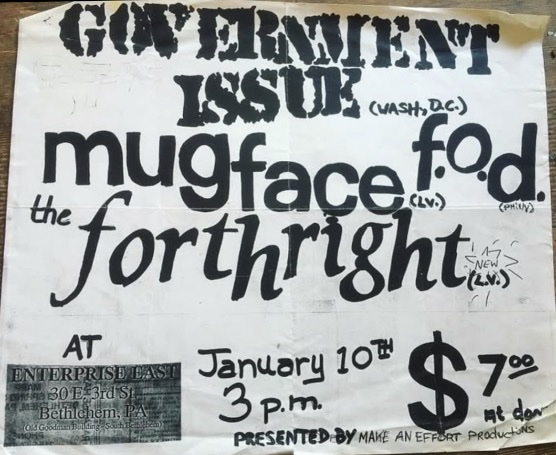 GOVERNMENT
ISSUE (WASH, D.C.)
mugface (L.V.) f.o.d. (PHILLY)
the forthright NEW (L.V.)
AT
ENTERPRISE EAST
30 E. 3rd St.
Bethlehem, PA
(Old Goodman Building - South Bethlehem)
January 10TH
3 p.m.
$7.00
At door
PRESENTED BY MAKE AN EFFORT PRODUCTIONS